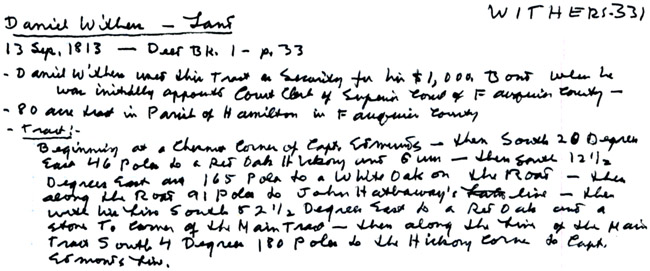 WITHERS-331
Daniel Withers — Land
13 Sep, 1813 — Deed Bk. 1 - p. 33
- Daniel Withers uses this Tract as Security for his $1,000 Bond when he
was initially appointed Court Clerk of Superior Court of Fauquier County -
- 80 acre tract in Parish of Hamilton in Fauquier County
- Tract:-
Beginning at a Chesnut Corner of Capt. Edmunds - then South 20 Degrees
East 46 Poles to a Red Oak Hickory and Gum - then South 12 1/2
Degrees East 165 Poles to a White Oak on the Road - then
along the Road 91 Poles to John Hathaway's line - then
with his line South 52 1/2 Degrees East to a Red Oak and a
stone To Corner of the Main Tract - then along the line of the Main
Tract South 4 Degrees 180 Poles to the Hickory Corner to Capt.
Edmonds line.